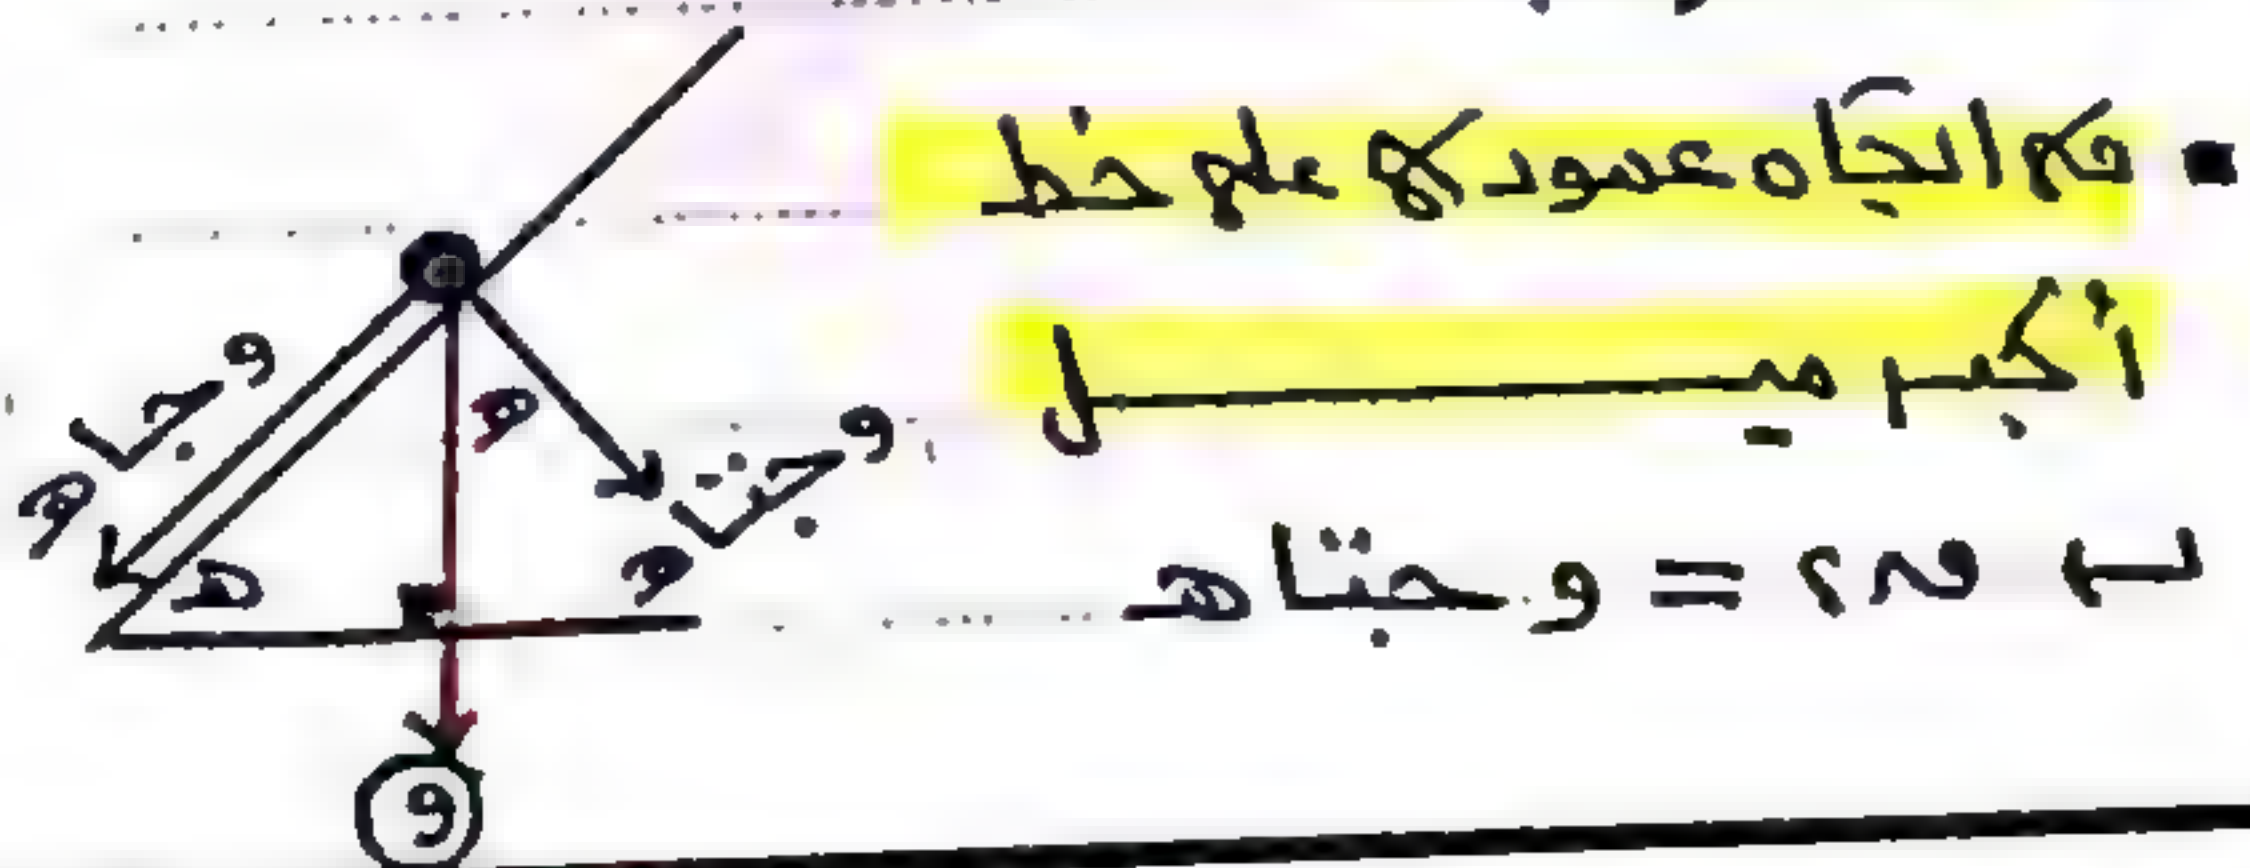 ▪ في اتجاه عمودي على خط
أكبر ميل
ى٢ = و جتا هـ
و جا هـ
هـ
و جتا هـ
هـ
و